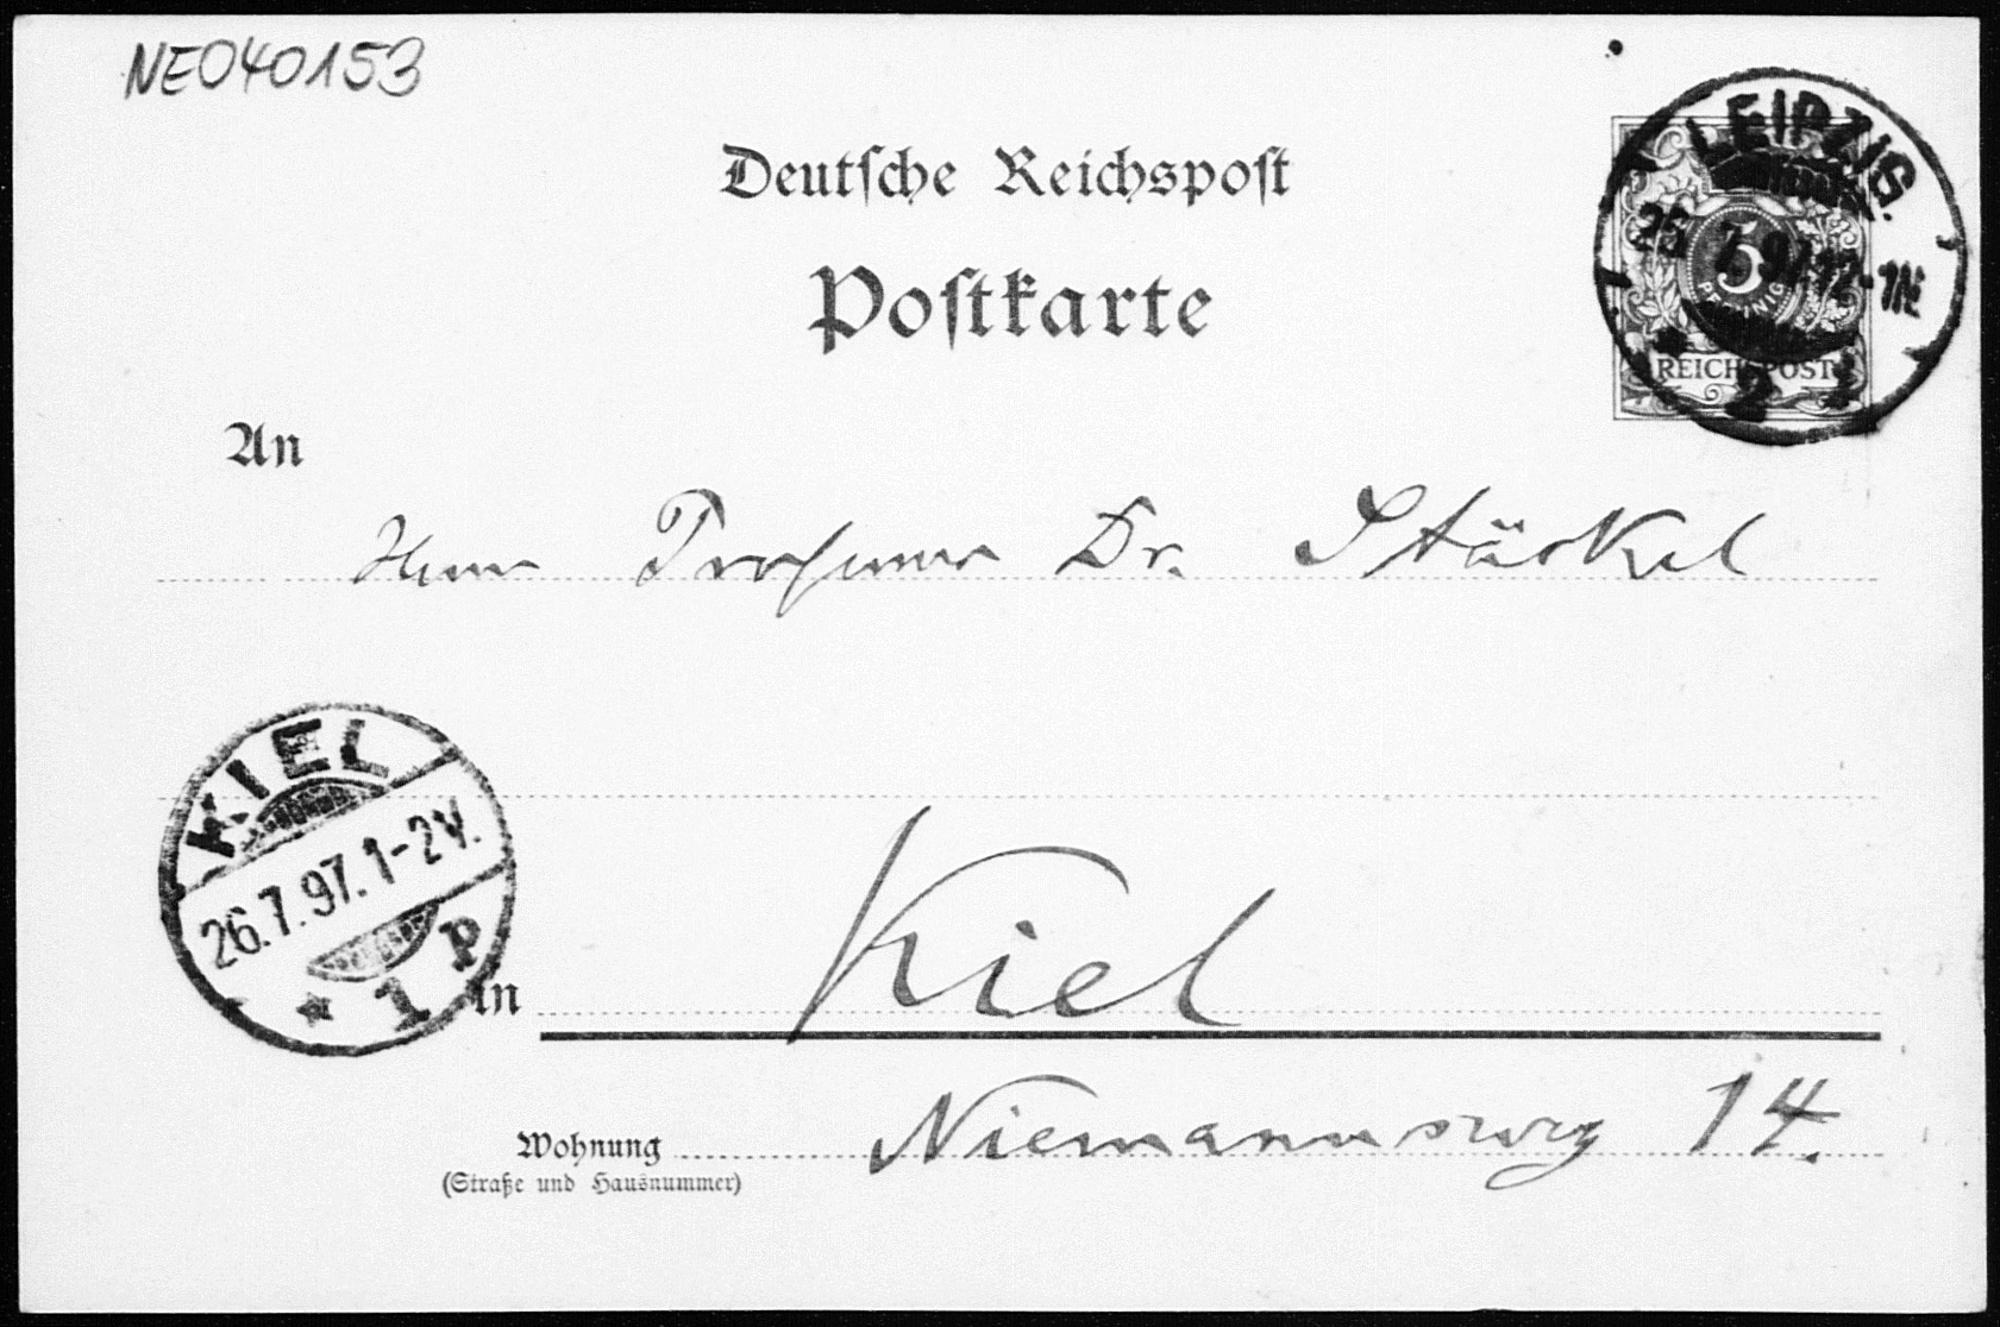 NE040153
Deutsche Reichspost
Postkarte
LEIPZIG.
7.97.12-1N
2
5
PFENNIG
REICHSPOST
An
Herrn Professor Dr. Stäckel
KIEL
26.7.97.1-2V.
* 1 P
in Kiel
Wohnung Niemannsweg 14.
(Straße und Hausnummer)